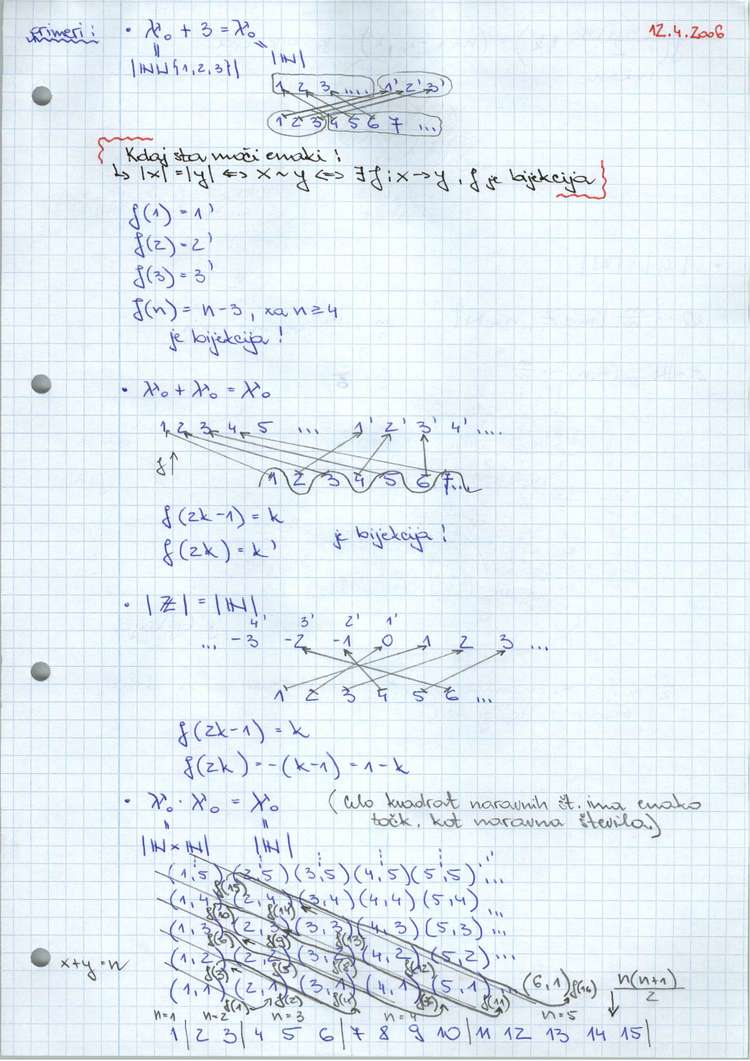 primeri:
12.4.2006
• ℵ₀ + 3 = ℵ₀
|ℕ∪{1,2,3}| |ℕ|
1 2 3 .... 1' 2' 3'
1 2 3 4 5 6 7 ...
Kdaj sta moči enaki:
↳ |x| = |y| ⇔ x ~ y ⇔ ∃ f: x → y, f je bijekcija
f(1) = 1'
f(2) = 2'
f(3) = 3'
f(n) = n-3, za n ≥ 4
je bijekcija!
• ℵ₀ + ℵ₀ = ℵ₀
1 2 3 4 5 ... 1' 2' 3' 4' ....
f ↑
1 2 3 4 5 6 7...
f(2k-1) = k
f(2k) = k' je bijekcija!
• |ℤ| = |ℕ|
4' 3' 2' 1'
... -3 -2 -1 0 1 2 3 ...
1 2 3 4 5 6 ...
f(2k-1) = k
f(2k) = -(k-1) = 1-k
• ℵ₀ · ℵ₀ = ℵ₀ (celo kvadrat naravnih št. ima enako
točk, kot naravna števila.)
|ℕ×ℕ| |ℕ|
(1,5) (2,5) (3,5) (4,5) (5,5) ...
f(15)
(1,4) (2,4) (3,4) (4,4) (5,4) ...
f(10) f(14)
(1,3) (2,3) (3,3) (4,3) (5,3) ...
f(6) f(9) f(13)
(1,2) (2,2) (3,2) (4,2) (5,2) ...
x+y=n
f(3) f(5) f(8) f(12)
(1,1) (2,1) (3,1) (4,1) (5,1) ... (6,1) f(16) n(n+1)/2
f(1) f(2) f(4) f(11)
n=1 n=2 n=3 n=4 n=5
1 | 2 3 | 4 5 6 | 7 8 9 10 | 11 12 13 14 15 |